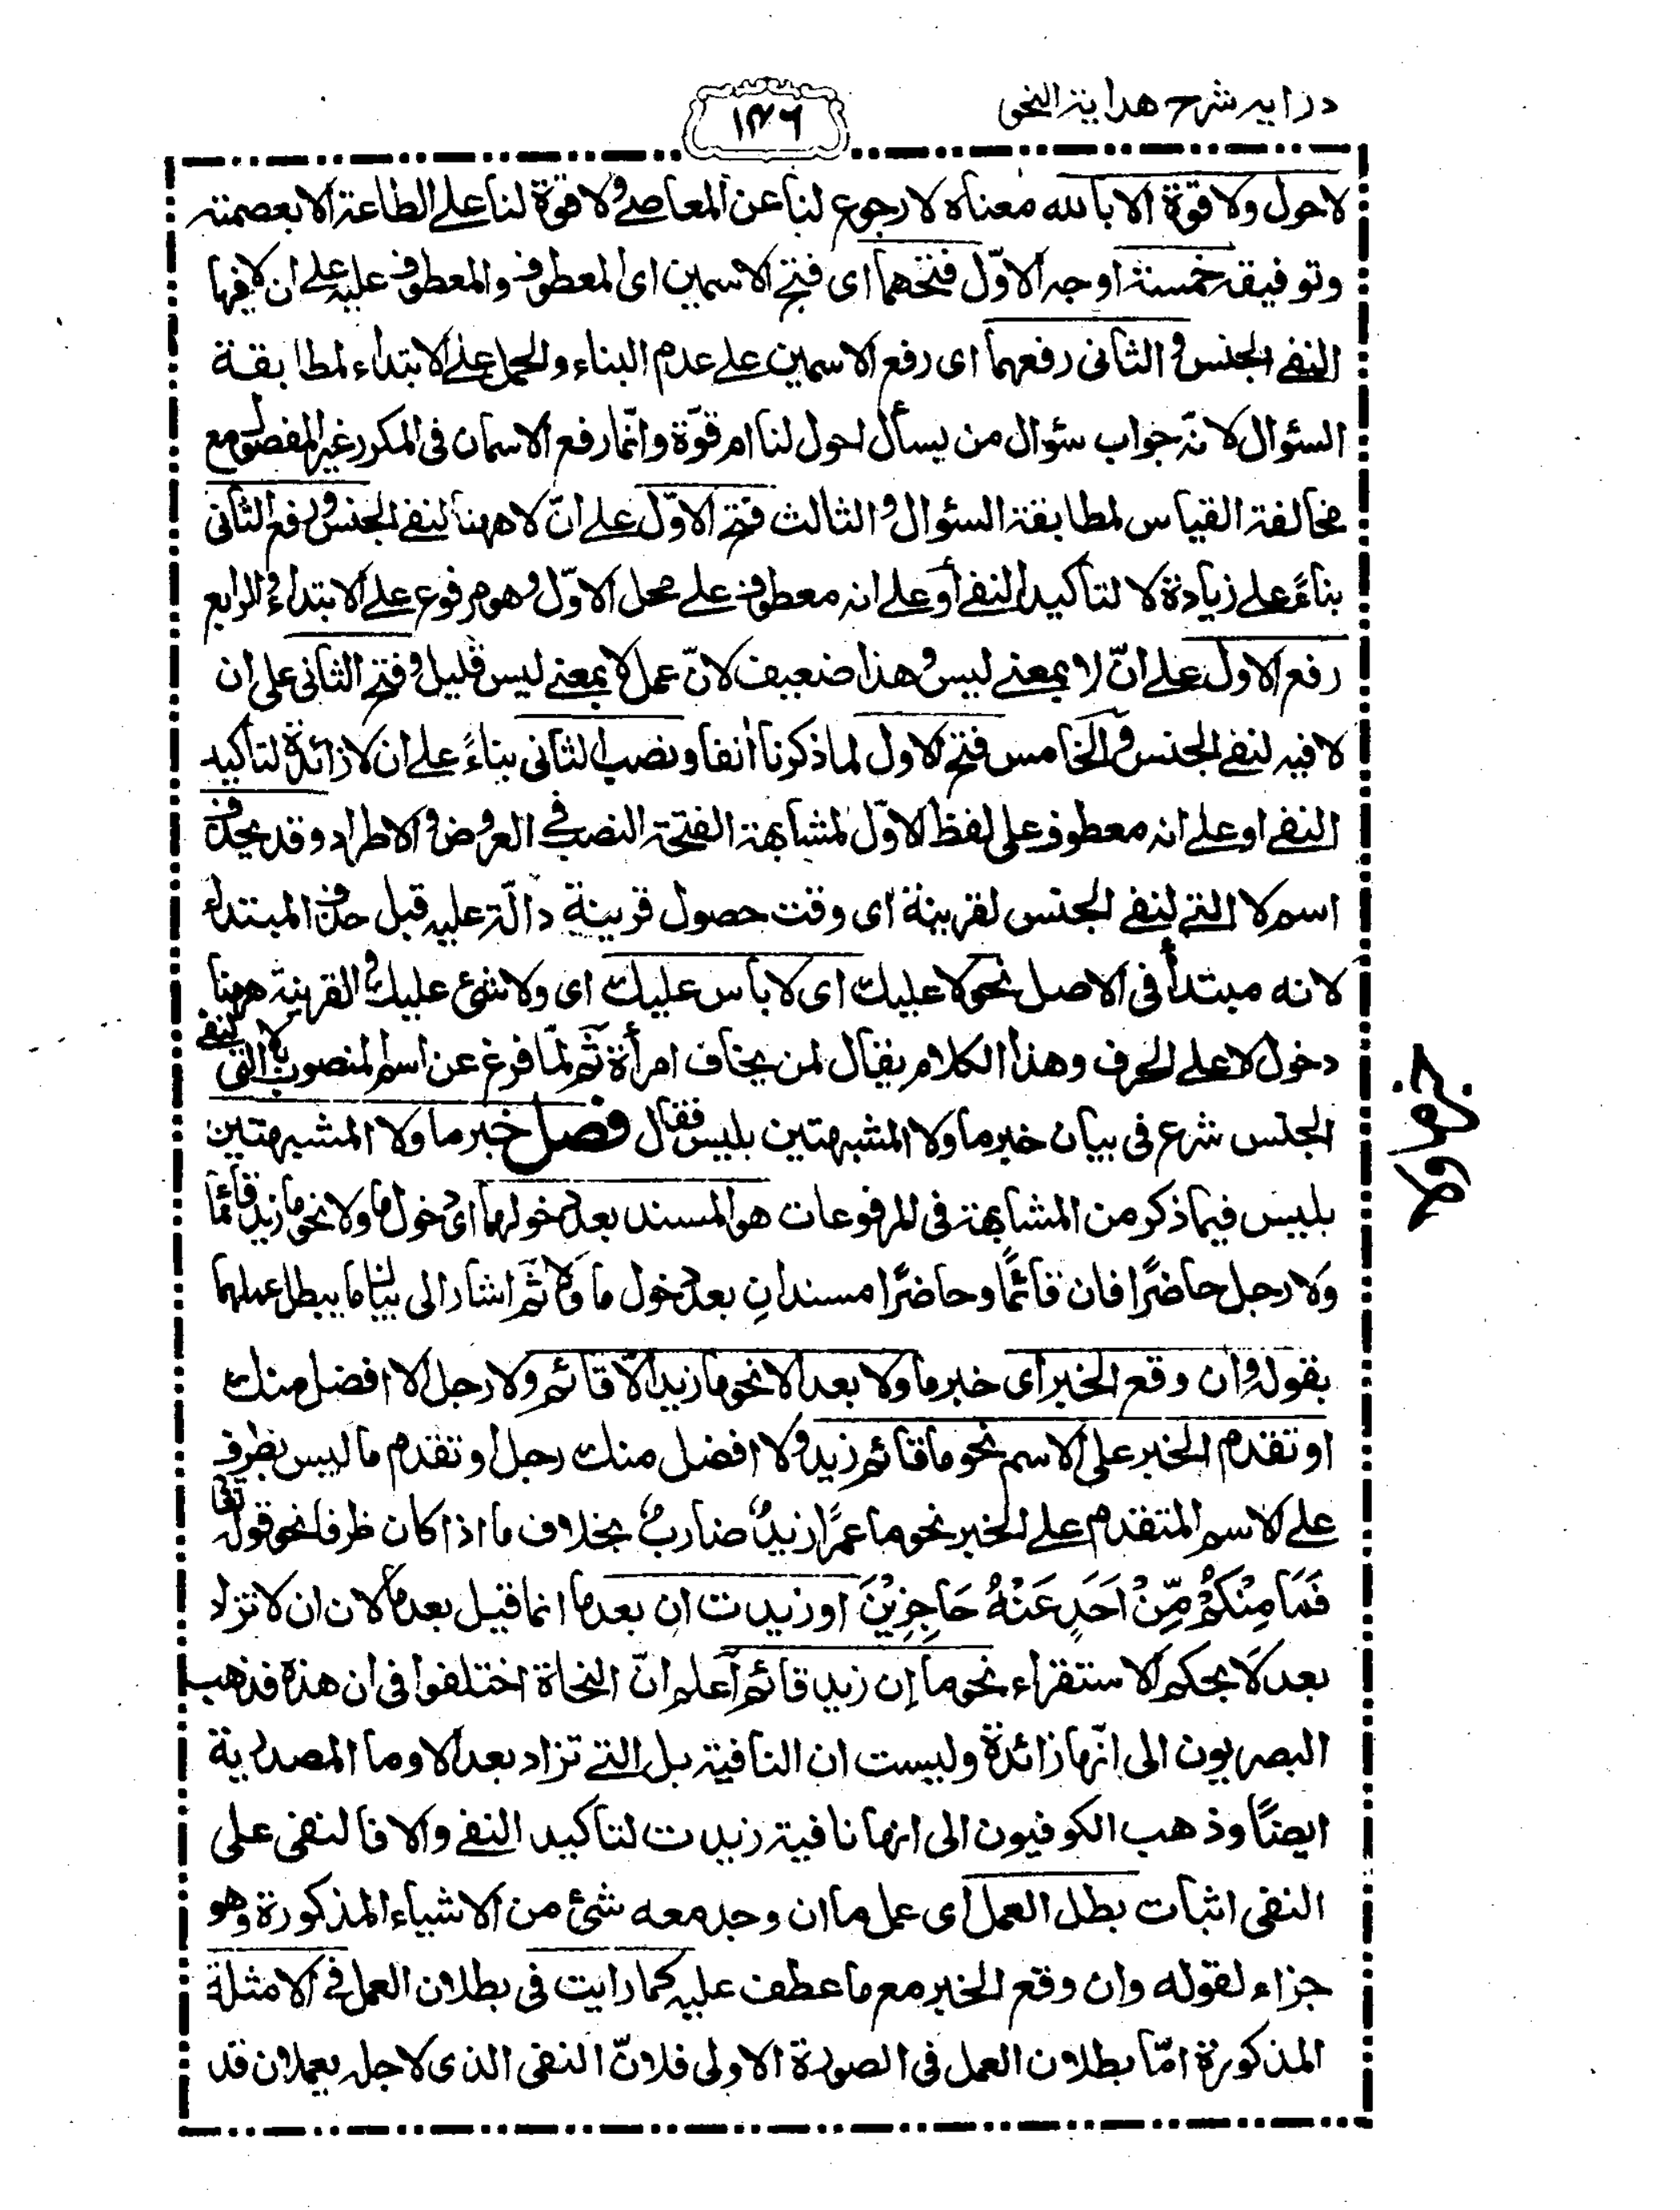 درايه شرح هداية النحو
١٤٦
لاحول ولا قوّة الا بالله معناه لا رجوع لنا عن المعاصے ولا قوّة لنا علے الطاعة الا بعصمته
وتوفيقه خمسة اوجه الاوّل فتحهما اى فتح الاسمين اى المعطوف والمعطوف عليه علے ان لا فيها
النفے الجنس والثانى رفعهما اى رفع الاسمين علے عدم البناء والحمل علے الابتداء لمطابقة
السئوال لانّه جواب سئوال من يسأل احول لنا ام قوّة وانّما رفع الاسمان فى المكرر غير المفصول مع
مخالفة القياس لمطابقة السئوال والثالث فتح الاوّل علے انّ لا ههنا لنفے الجنس ورفع الثانى
بناءً علے زيادة لا لتأكيد النفے أو علے انه معطوف علے محل الاوّل وهو مرفوع علے الابتداء والرابع
رفع الاول علے انّ لا بمعنے ليس وهذا ضعيف لانّ عمل لا بمعنے ليس قليل وفتح الثانى على ان
لا فيه لنفے الجنس والخامس فتح الاول لما ذكرنا أنفا ونصب الثانى بناءً علے ان لا زائدة لتأكيد
النفے او علے انه معطوف على لفظ الاوّل لمشابهة الفتحة النصب فے العروض والاطراد وقد يحذف
اسم لا التے لنفے الجنس لقرينة اى وقت حصول قرينة دالّة عليه قبل حذف المبتداء
لانه مبتدأ فى الاصل نحو لا عليك اى لا باس عليك اى ولا شئ عليك والقرينة ههنا
دخول لا علے الحرف وهذا الكلام يقال لمن يخاف امرأة ثمّ لمّا فرغ عن اسم المنصوب بلا التى لنفے
الجنس شرع فى بيان خبر ما ولا المشبهتين بليس فقال فصل خبر ما ولا المشبهتين
بليس فيما ذكر من المشابهة فى المرفوعات هو المسند بعد دخولهما اى دخول ما ولا نحو ما زيد قائمًا
ولا رجل حاضرًا فان قائمًا وحاضرًا مسندانِ بعد دخول ما ولا ثمّ اشار الى بيان ما يبطل عملهما
بقوله وان وقع الخبر اى خبر ما ولا بعد الا نحو ما زيد الّا قائم ولا رجل الا افضل منك
او تقدم الخبر على الاسم نحو ما قائم زيد ولا افضل منك رجل او تقدم ما ليس بظرف
علے الاسم المتقدم علے الخبر نحو ما عمرًا زيدٌ ضاربٌ بخلاف ما اذا كان ظرفا نحو قوله تعالى
فَمَا مِنْكُمْ مِّنْ اَحَدٍ عَنْهُ حَاجِزِيْنَ او زيدت ان بعد ما انما قيل بعد ما لان ان لا تزاد
بعد لَا بحكم الاستقراء نحو ما إن زيد قائم أعلم انّ النحاة اختلفوا فى ان هذه فذهب
البصريون الى انّها زائدة وليست ان النافية بل التے تزاد بعد الا وما المصدرية
ايضًا وذهب الكوفيون الى انها نافية زيدت لتأكيد النفے والا فالنفى على
النفى اثبات بطل العمل اى عمل ما ان وجد معه شئ من الاشياء المذكورة وهو
جزاء لقوله وان وقع الخبر مع ما عطف عليه كما رايت فى بطلان العمل فے الامثلة
المذكورة امّا بطلان العمل فى الصورة الاولى فلانّ النفى الذى لاجله يعملان قد